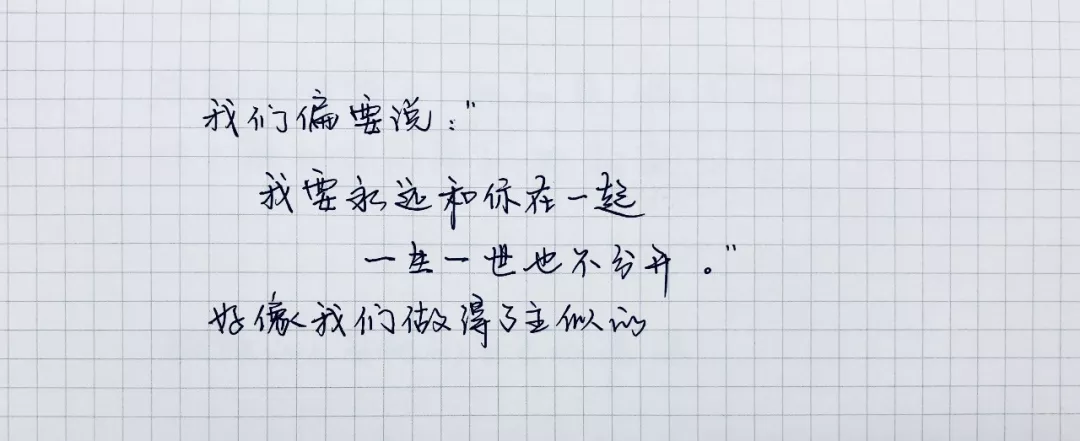 我们偏要说："
我要永远和你在一起
一生一世也不分开。"
好像我们做得了主似的